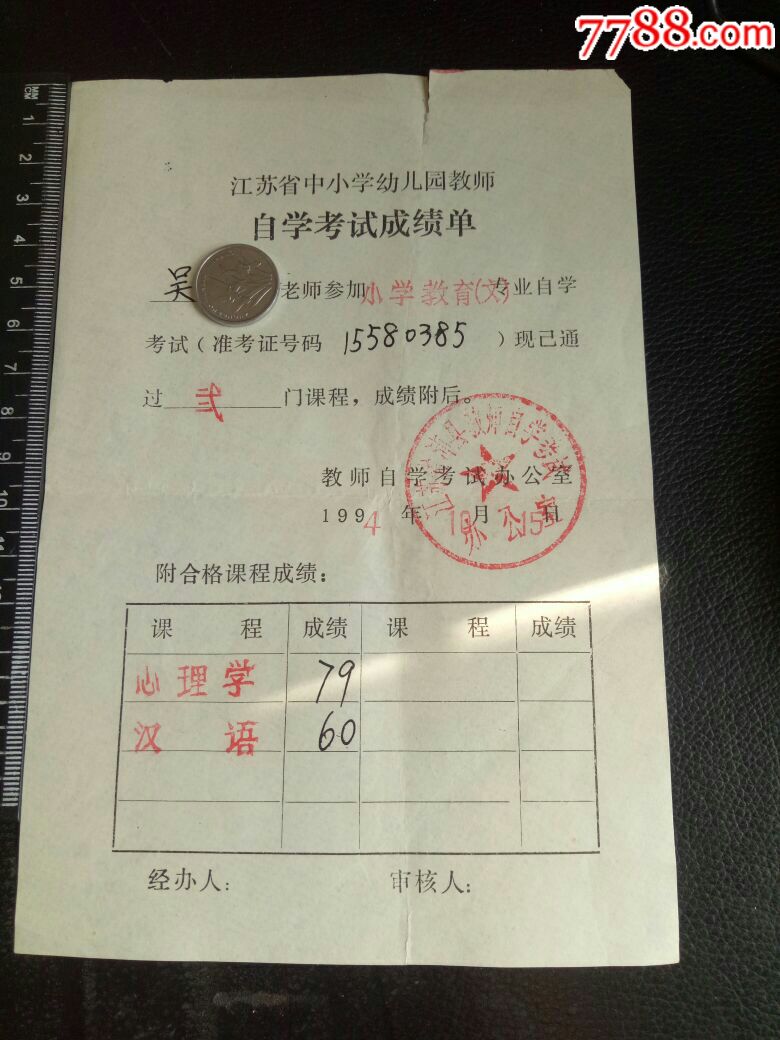 7788.com
江苏省中小学幼儿园教师
自学考试成绩单
吴 老师参加小学教育(文)专业自学
考试（准考证号码 15580385 ）现已通
过 弍 门课程，成绩附后。
教师自学考试办公室
1994 年 10 月 15 日
办公室
附合格课程成绩：
课 程 成绩 课 程 成绩
心理学 79
汉 语 60
经办人： 审核人：
MM
CM
1
2
3
4
5
6
7
8
9
10
11